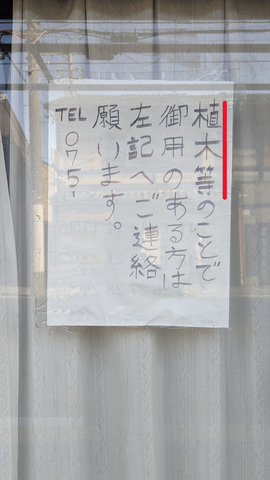 植木等のことで
御用のある方は
左記へご連絡
願います。
TEL
075-